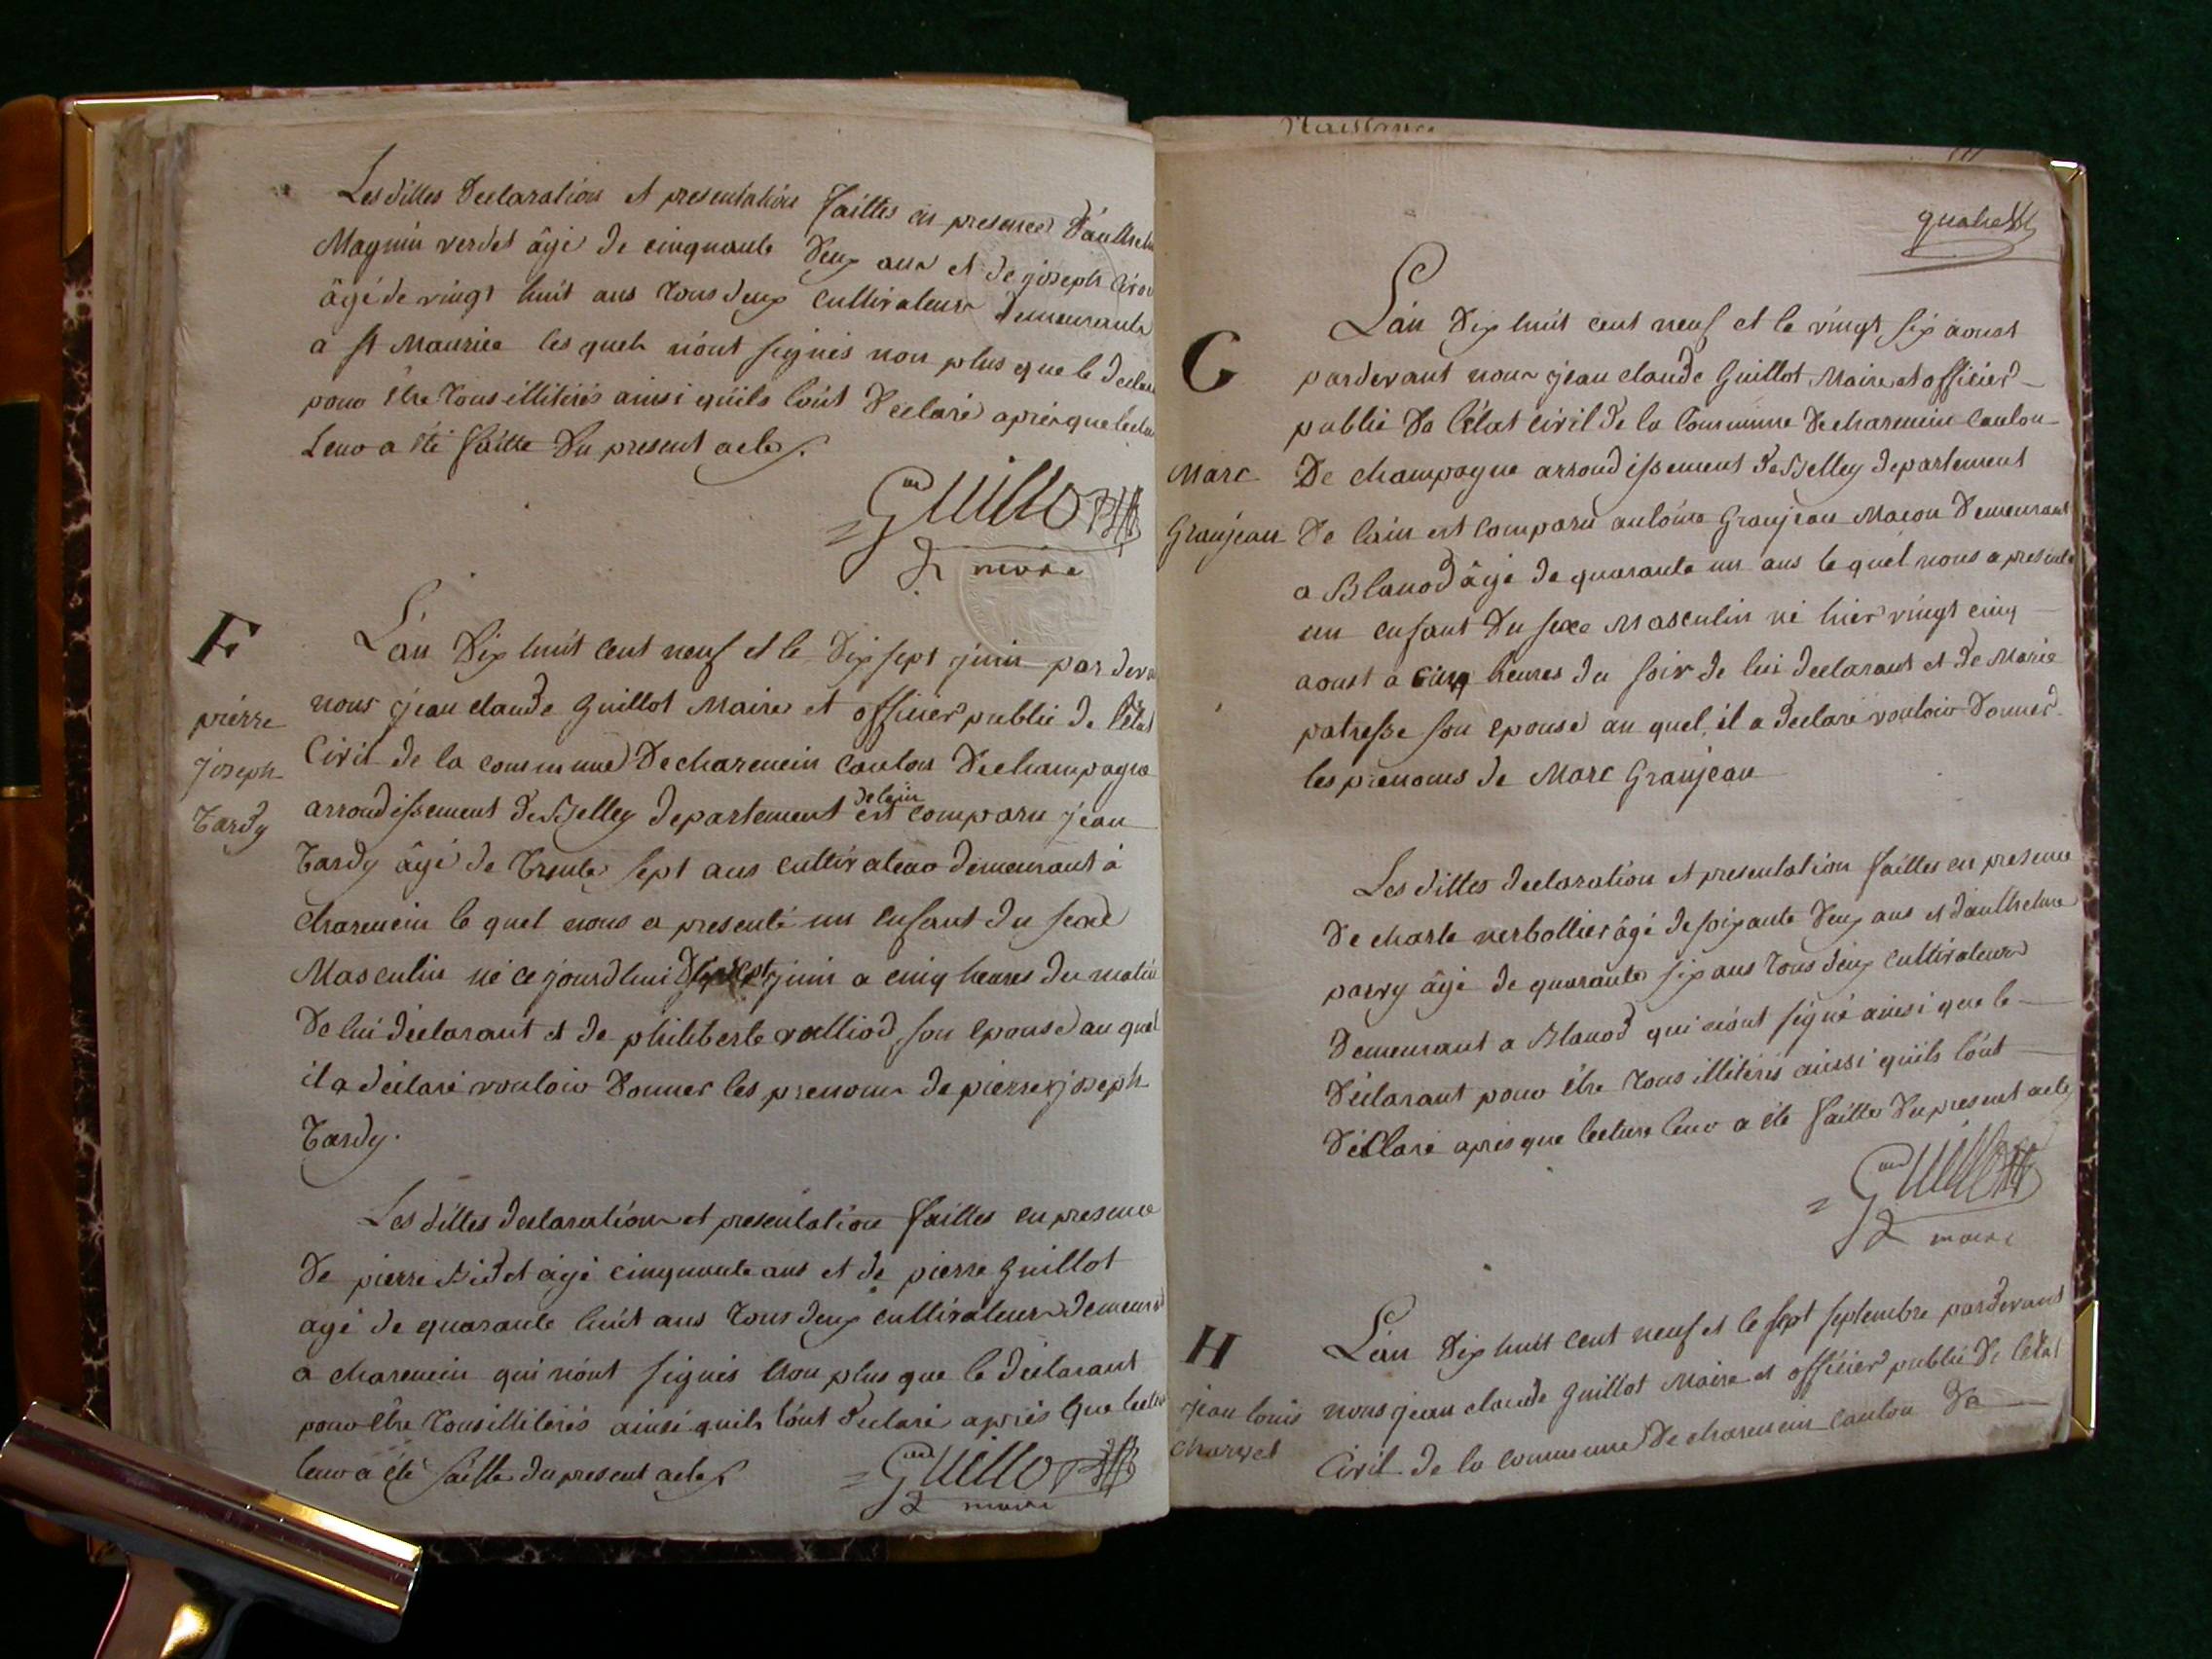 Les dittes declaration et presentation faittes en presence d'anthelme
Magnin verdet âgé de cinquante deux ans et de joseph
âgé de vingt huit ans tous deux cultivateurs demeurants
a st Maurice les quels n'ont signés non plus que le declar
pour être tous illitérés ainsi qu'ils l'ont declaré après que lectu
leur a été faitte du present acte.
Guillot
maire
F
pierre
joseph
Tardy
L'an dix huit cent neuf et le dix sept juin par deva
nous jean claude Guillot Maire et officier public de l'état
Civil de la commune de charencin canton de champagne
de lain
arrondissement de Belley departement est comparu jean
Tardy âgé de trente sept ans cultivateur demeurant à
charencin le quel nous a presenté un enfant du sexe
Masculin né ce jourdhui dix sept juin a cinq heures du matin
de lui déclarant et de philiberte valliod son epouse au quel
il a déclaré vouloir donner les prenoms de pierre joseph
Tardy.
Les dittes declaration et presentation faittes en presence
de pierre âgé cinquante ans et de pierre Guillot
agé de quarante huit ans tous deux cultivateurs demeurt
a charencin qui n'ont signés non plus que le déclarant
pour être tous illitérés ainsi quils l'ont declaré après que lectur
leur a été faitte du present acte
Guillot
maire
Naissance
quatre
G
Marc
Granjean
L'an dix huit cent neuf et le vingt six aoust
pardevant nous jean claude Guillot Maire et officier
public de l'état civil de la Commune de charencin canton
De champagne arrondissement de Belley departement
de lain est comparu antoine Granjean Macon demeurant
a Blanod âgé de quarante un ans le quel nous a presenté
un enfant du sexe Masculin né hier vingt cinq
aoust a cinq heures du soir de lui declarant et de Marie
patresse son epouse au quel il a declaré vouloir donner
les prenoms de Marc Granjean
Les dittes declaration et presentation faittes en presence
de charle nerbollier âgé de soixante deux ans et d'anthelme
parry âgé de quarante six ans tous deux cultivateurs
demeurant a Blanod qui n'ont signé ainsi que le
déclarant pour être tous illitérés aiussi qu'ils l'ont
déclaré après que lecture leur a été faitte du present acte
Guillot
maire
H
jean louis
Charvet
L'an dix huit cent neuf et le sept septembre pardevant
nous jean claude Guillot Maire et officier public de l'état
Civil de la commune de charencin canton de